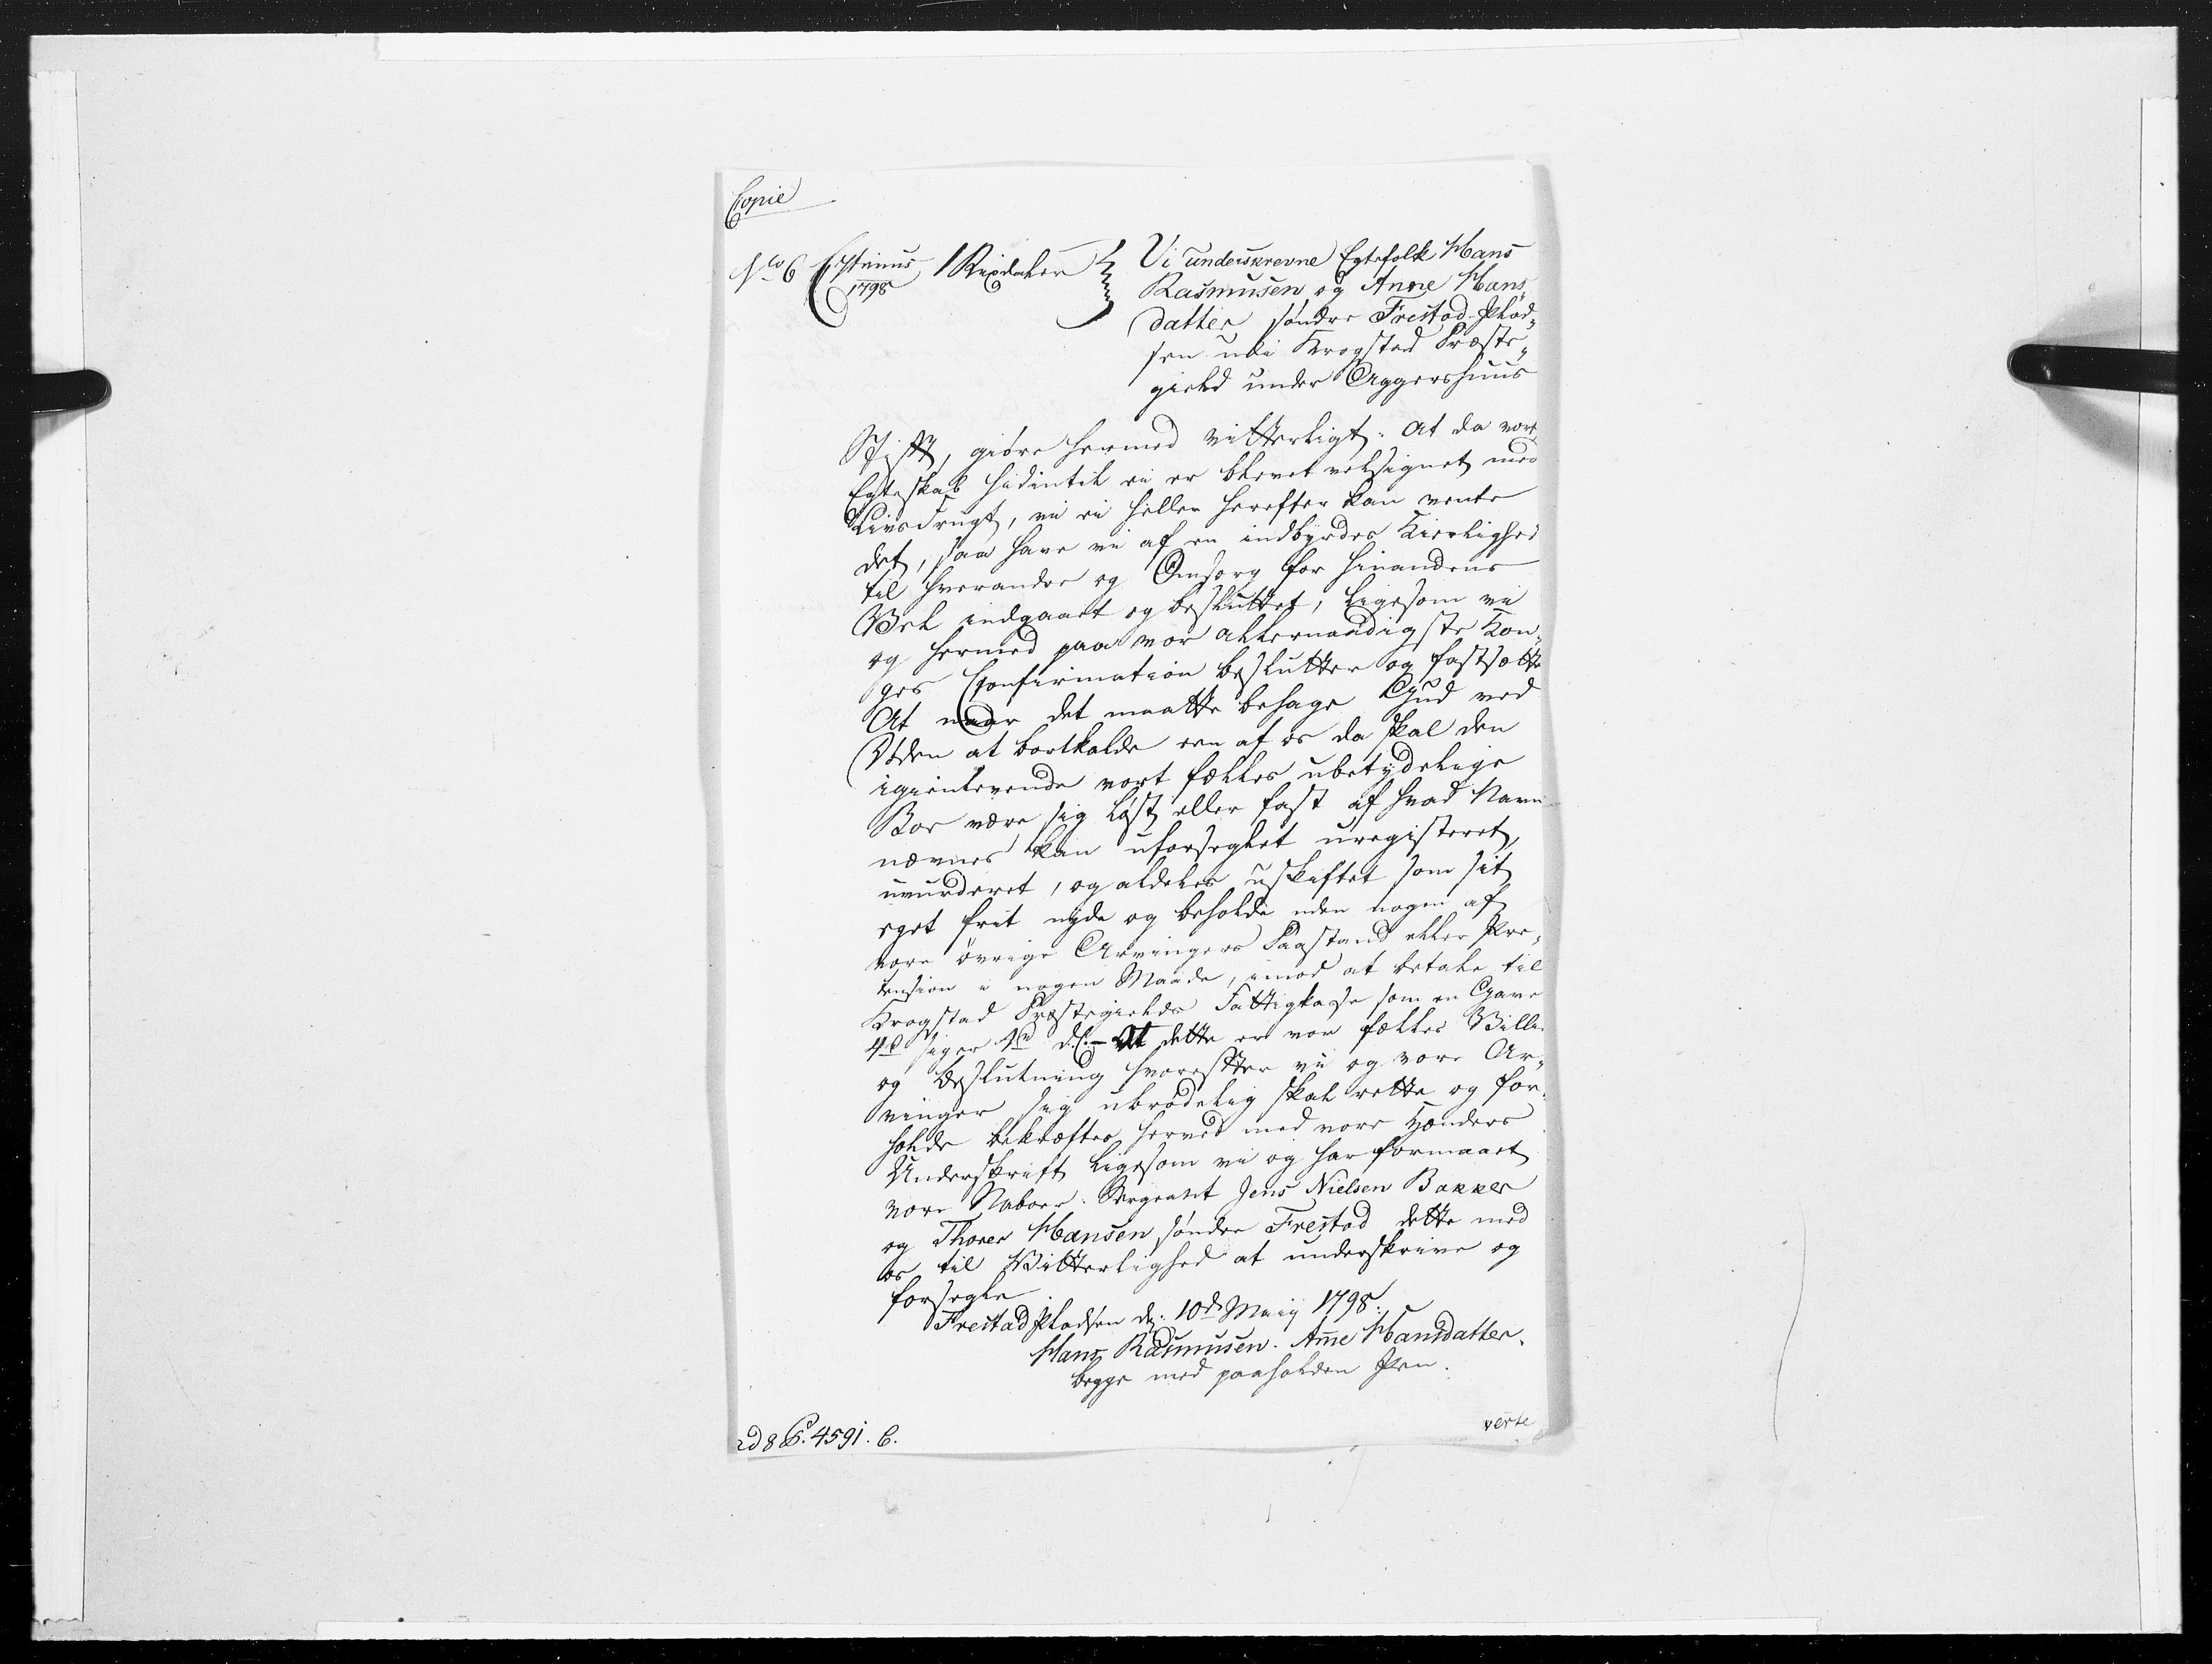 Copie
No 6 Cristinus 1 Rixdaler
1798
Vi underskrevne Egtefolk Hans
Rasmusen og Anne Hans„
datter søndre Frestad Plad„
sen udi Krogstad Præste„
gield under Aggershuus
Stift, giöre hermed vitterligt: At da vort
Egteskab hidintil ei er blevet velsignet med
Livsfrugt, vi ei heller herefter kan vente
det, saa have vi af en indbyrdes Kierlighed
til hverandre og Omsorg for hinandens
Vel indgaaet og besluttet, ligesom vi
og hermed paa vor allernaadigste Kon„
ges Confirmation beslutter og fastsætte
At naar det maatte behage Gud ved
Döden at bortkalde een af os da skal den
igienlevende vort fælles ubetydelige
Boe være sig löst eller fast af hvad Navn
nævnes kan uforseglet uregisteret,
uvurderet, og aldeles uskiftet som sit
eget frit nyde og beholde uden nogen af
vore övrige Arvingers Paastand eller Præ„
tension i nogen Maade, imod at betale til
Krogstad Præstegields Fattigkasse som en Gave
4 siger 4re At dette er vor fælles Villie
og Beslutning hvorefter vi og vore Ar„
vinger sig ubrödelig skal rette og for„
holde bekræftes herved med vore Hænders
Underskrift ligesom vi og har formaaet
vore Naboer Sergeant Jens Nielsen Bakker
og Thorer Hansen søndre Frestad dette med
os til Vitterlighed at underskrive og
forsegle.
Frestad Pladsen d: 10de Maij 1798.
Hans Rasmusen. Anne Hansdatter.
begge med paaholden Pen.
verte
ad 8 B. 4591. C.